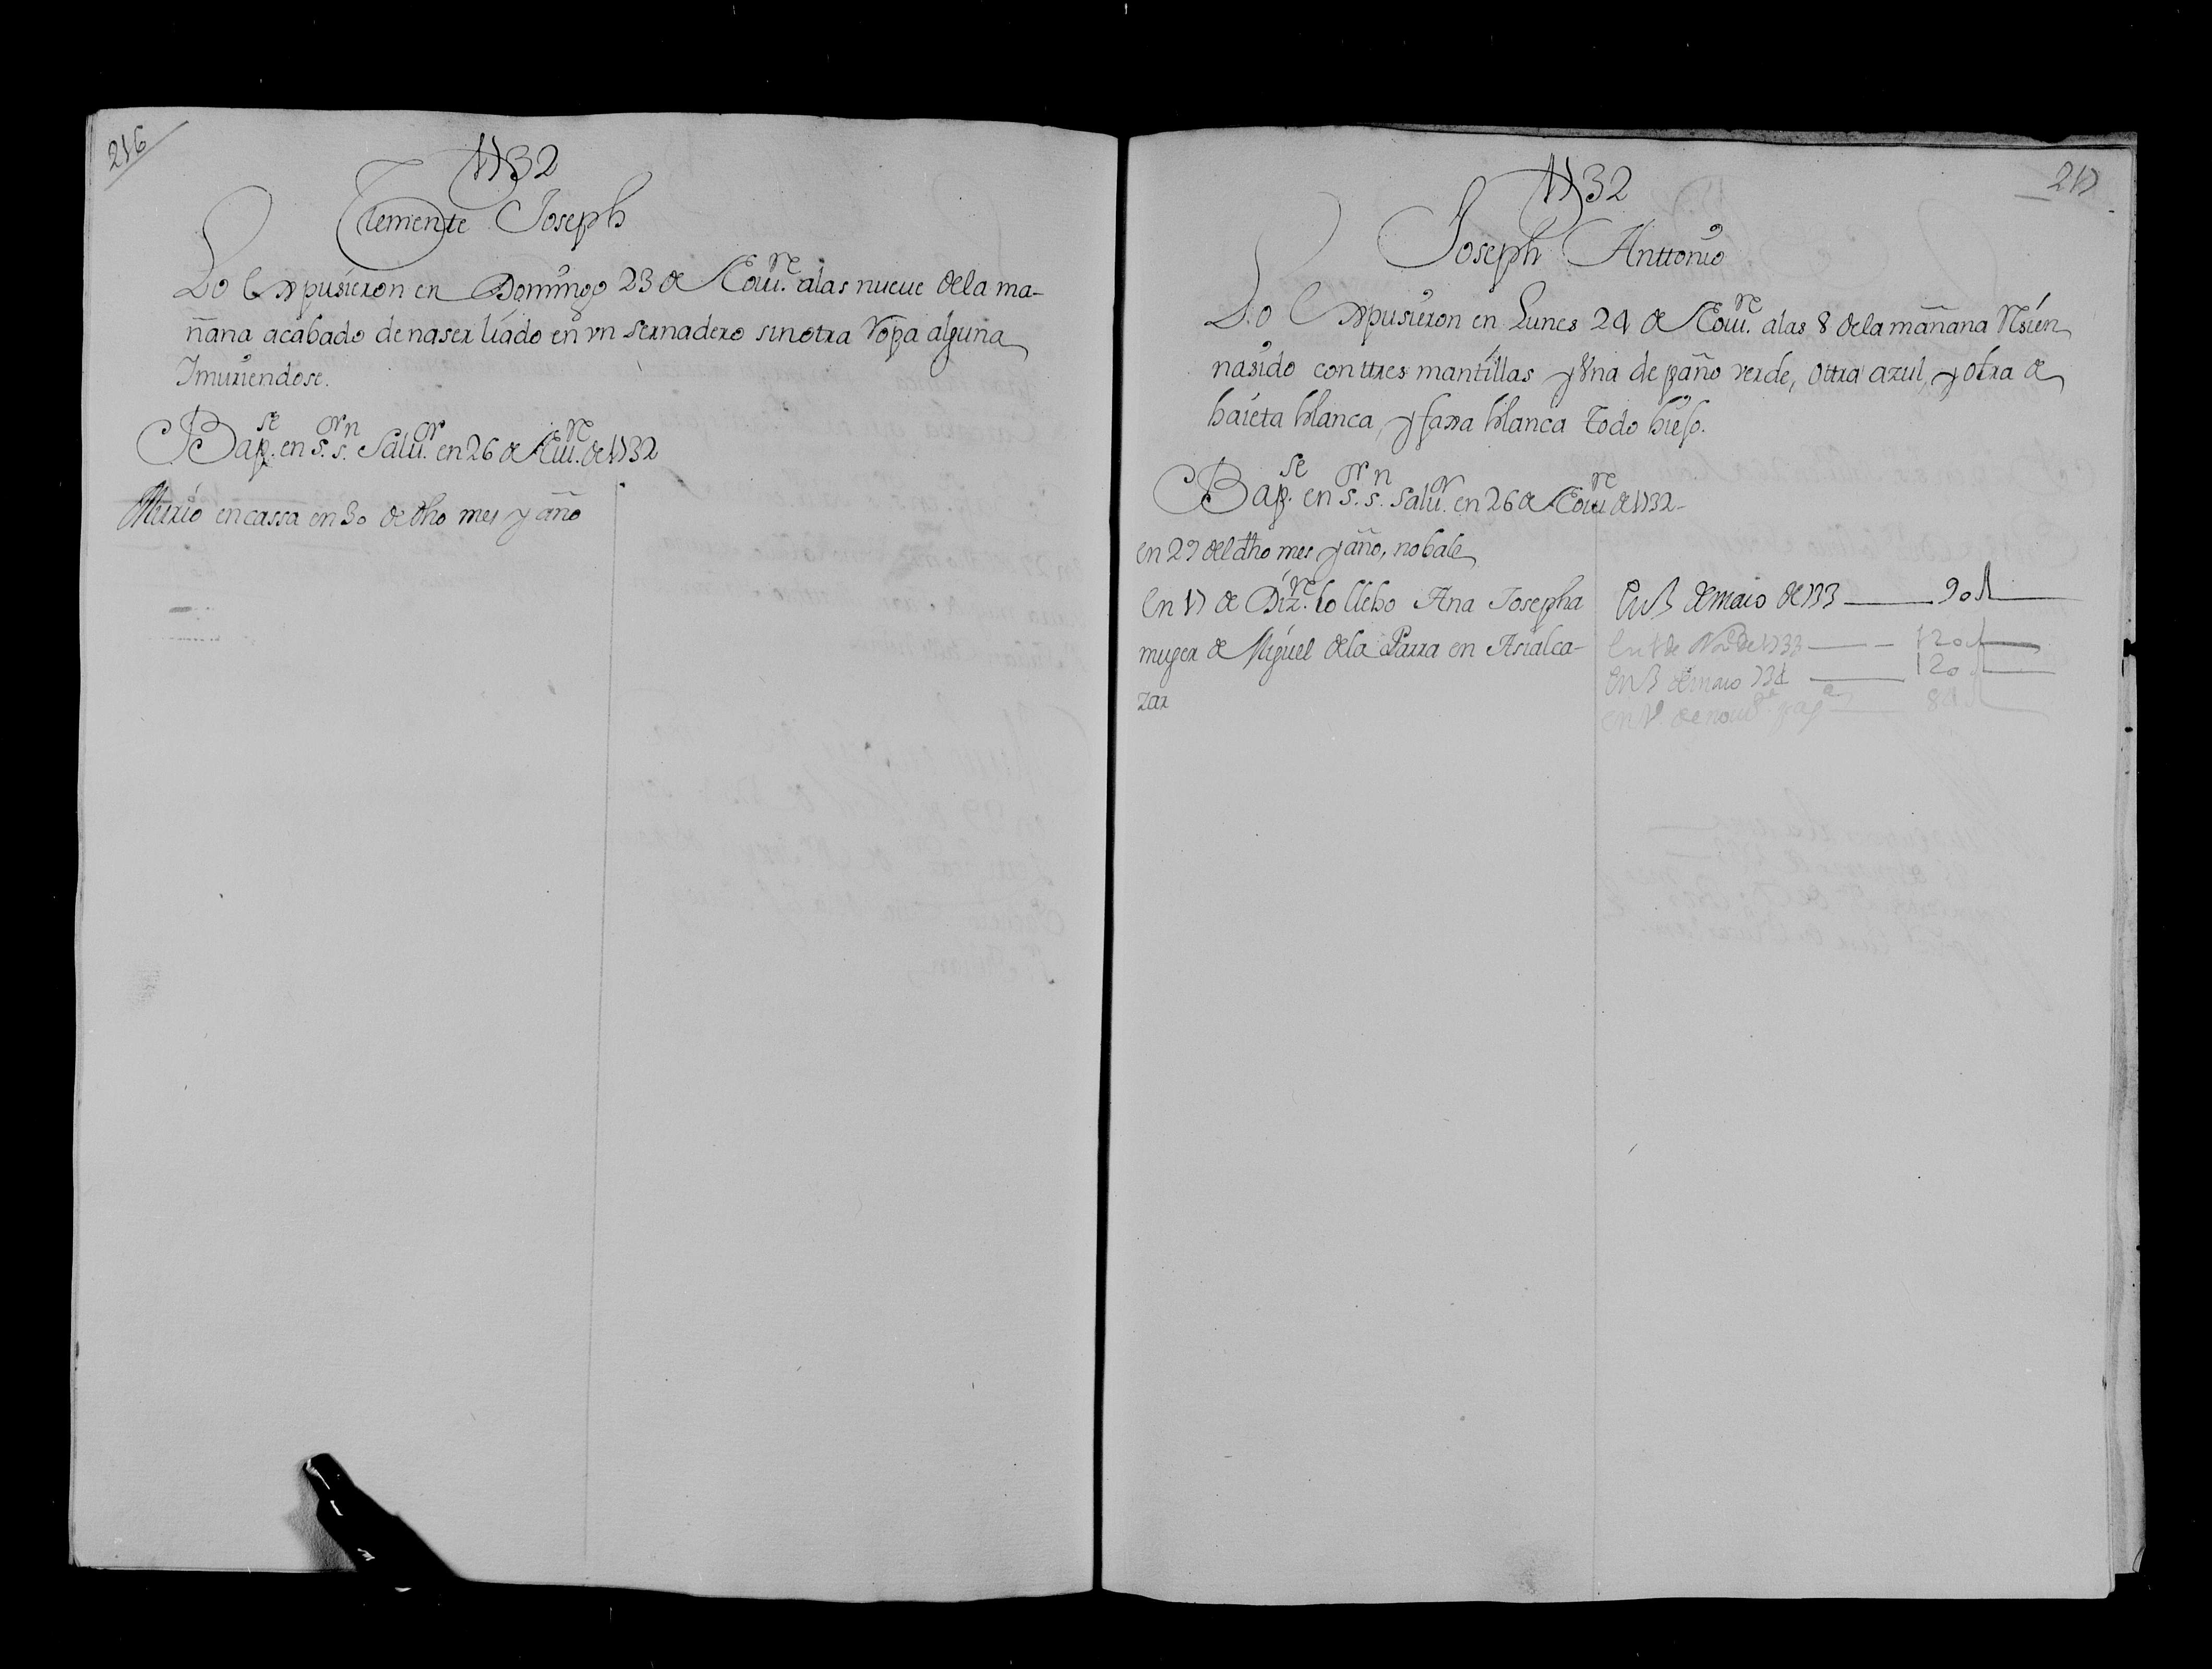 216
1732
Clemente Joseph
Lo Expusieron en Domingo 23 de Nov.re a las nueve de la ma-
ñana acabado de naser liado en vn sernadero sin otra Ropa alguna
Imuriendose.
Bap.se en s.r s.n Salu.or en 26 de Nov.re de 1732
Murio en cassa en 30 de dho mes y año
217
1732
Joseph Anttonio
Lo Expusieron en Lunes 24 de Nov.re a las 8 de la mañana Rsien
nasido con ttres mantillas y Vna de paño verde, ottra azul, y otra de
baieta blanca, y faxa blanca todo
Bap.se en s.r s.n Salu.or en 26 de Nov.re de 1732
en 29 del dho mes y año, no bale
En 17 de Diz.re lo llebo Ana Josepha
muger de Miguel de la Parra en Asialca-
zar
de maio de 733 90
de 1733 120
de maio 734 120
84